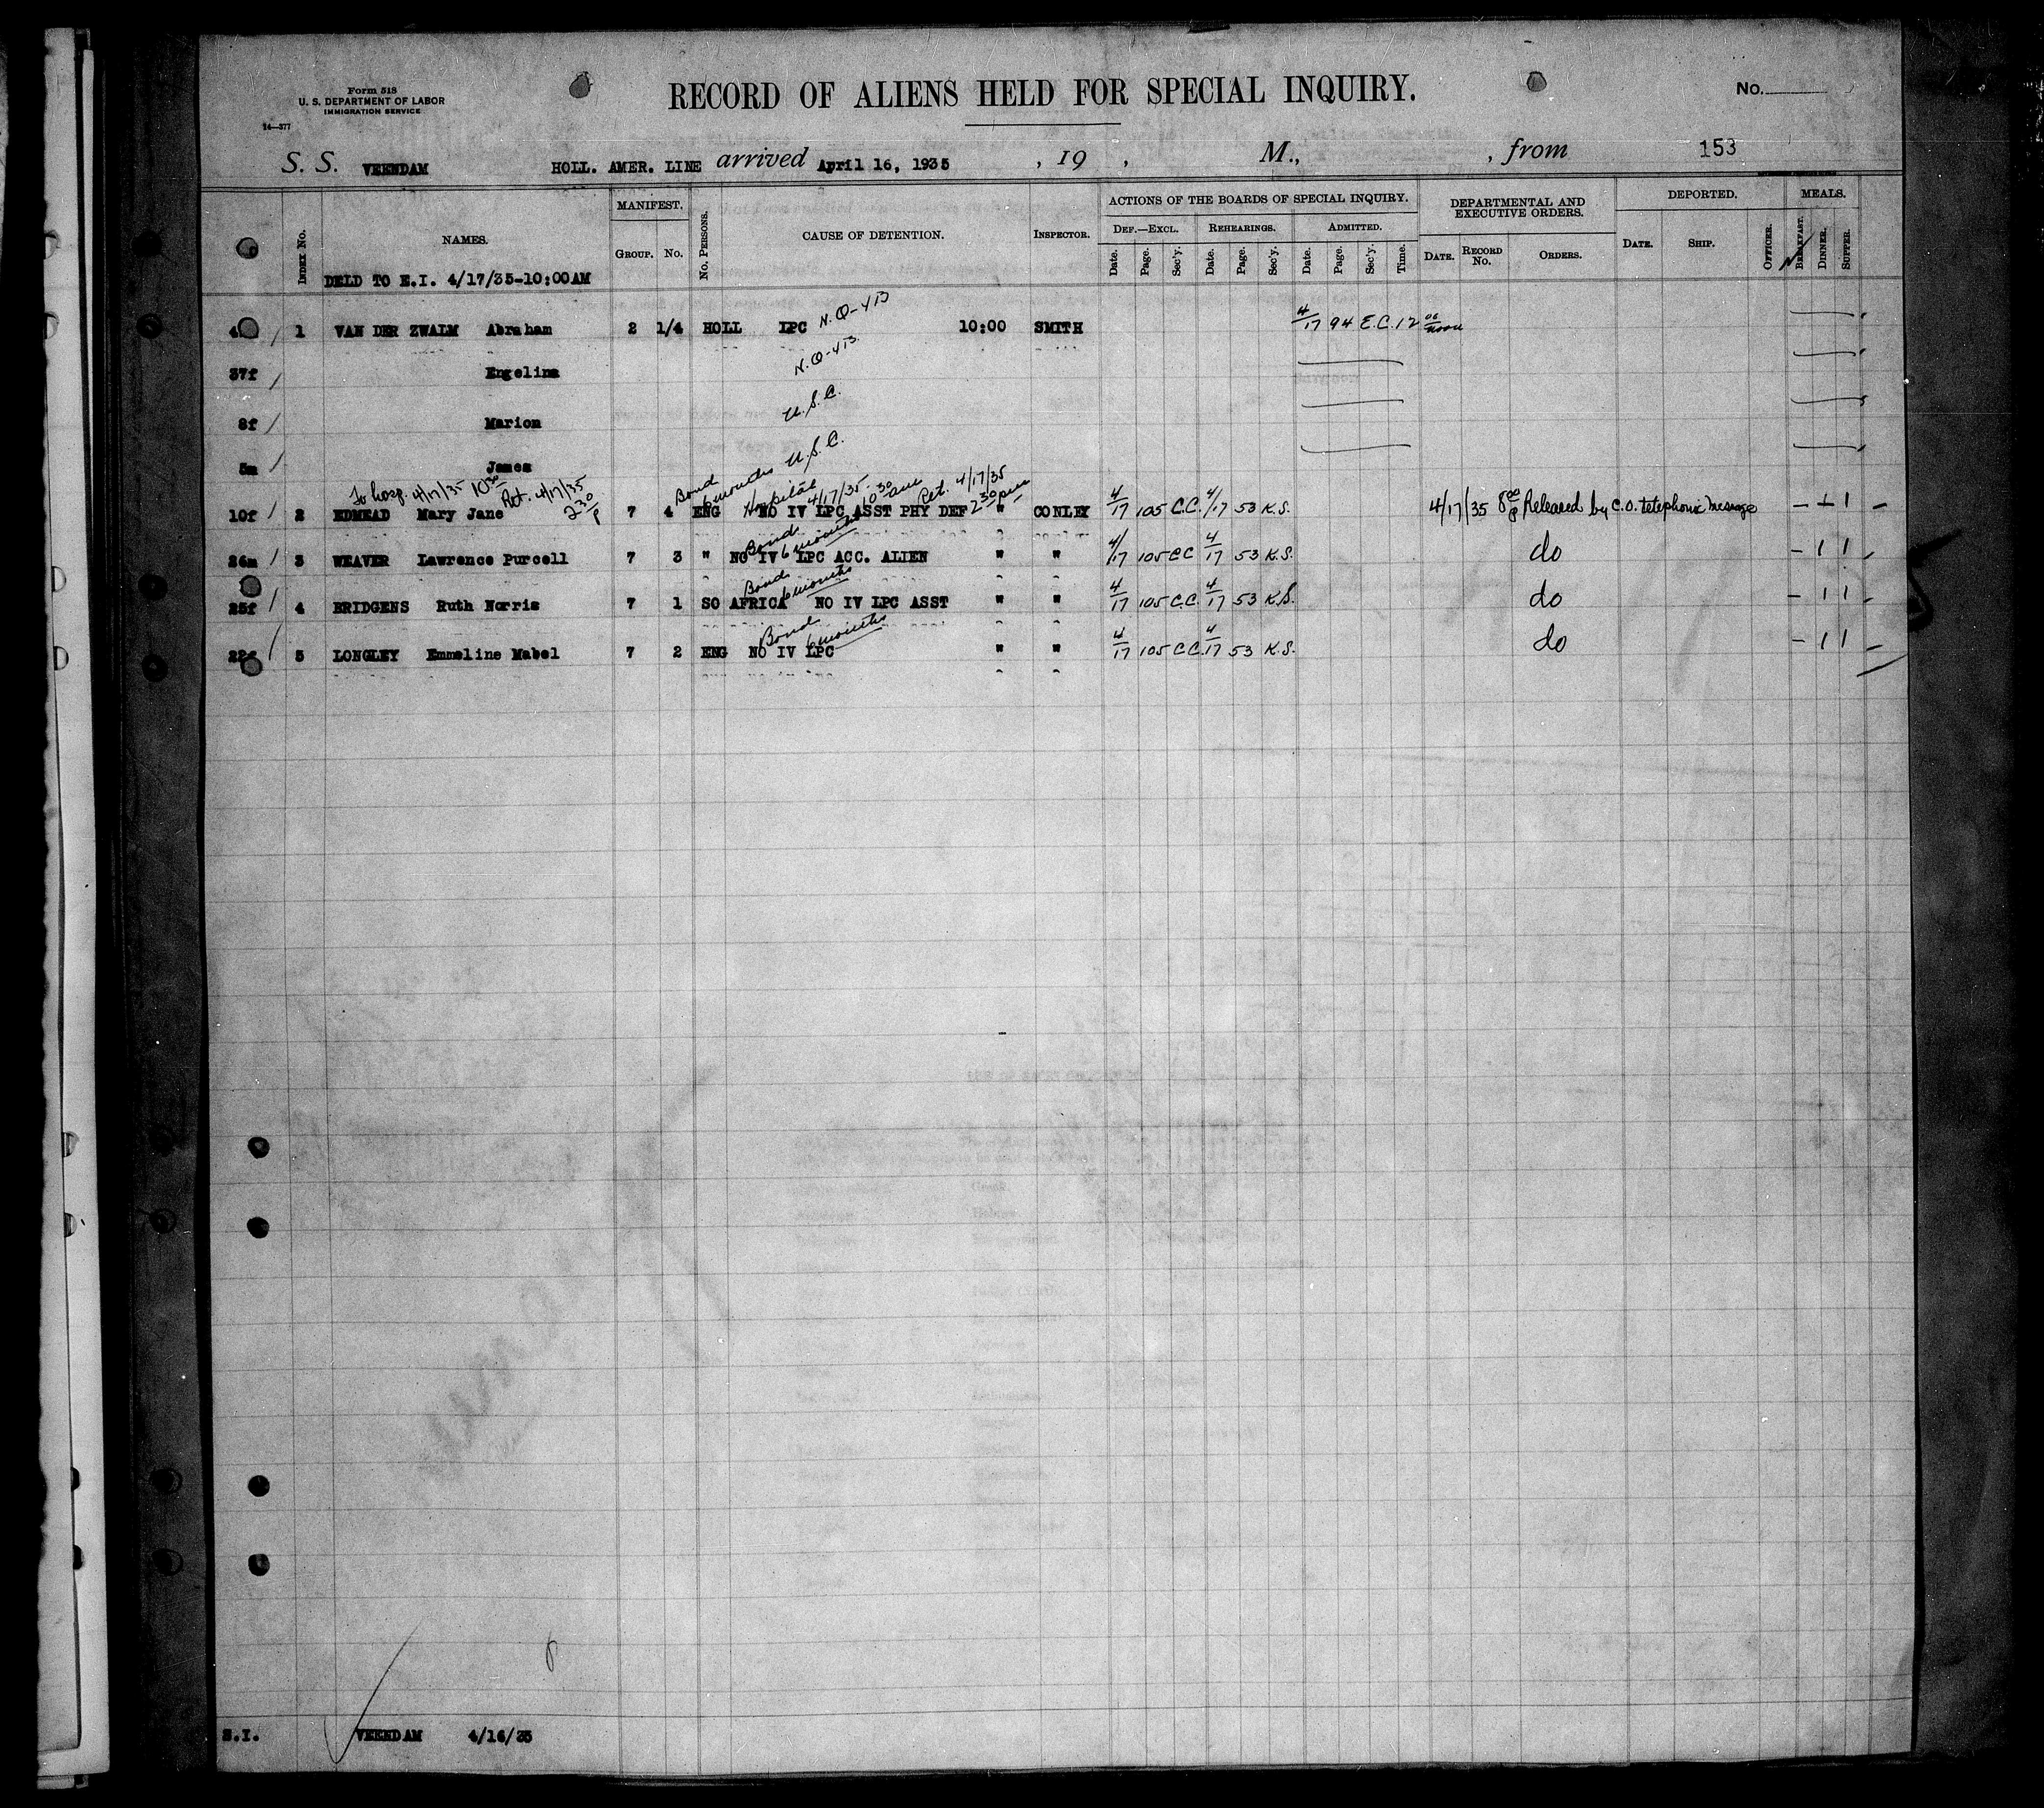 Form 518
U. S. DEPARTMENT OF LABOR
IMMIGRATION SERVICE
14—377
RECORD OF ALIENS HELD FOR SPECIAL INQUIRY.
No.
S. S. VEENDAM HOLL. AMER. LINE arrived April 16, 1935 , 19 , M., , from 153
INDEX No. NAMES. MANIFEST. GROUP. No. No. PERSONS. CAUSE OF DETENTION. INSPECTOR. ACTIONS OF THE BOARDS OF SPECIAL INQUIRY. DEF.—EXCL. Date. Page. Sec'y. REHEARINGS. Date. Page. Sec'y. ADMITTED. Date. Page. Sec'y. Time. DEPARTMENTAL AND EXECUTIVE ORDERS. DATE. RECORD No. ORDERS. DEPORTED. DATE. SHIP. OFFICER. MEALS. BREAKFAST. DINNER. SUPPER.
DELD TO E.I. 4/17/35-10:00AM
1 VAN DER ZWALM Abraham 2 1/4 HOLL LPC N.Q-4B 10:00 SMITH 4/17 94 E.C. 12 00 noon
37f Engelina N.Q-4B
8f Marion U.S.C.
5m James U.S.C.
To hosp. 4/17/35 10 30 Ret. 4/17/35 2 30 P Bond 6 months Hospital 4/17/35 10 30 am Ret. 4/17/35 2 30 pm
10f 2 EDMEAD Mary Jane 7 4 ENG NO IV LPC ASST PHY DEF " CONLEY 4/17 105 C.C. 4/17 53 K.S. 4/17/35 8 00 P Released by C.O. telephonic message – 1 1
Bond 6 months
26m 3 WEAVER Lawrence Purcell 7 3 " NO IV LPC ACC. ALIEN " " 4/17 105 C.C 4/17 53 K.S. do – 1 1
Bond 6 months
25f 4 BRIDGENS Ruth Norris 7 1 SO AFRICA NO IV LPC ASST " " 4/17 105 C.C. 4/17 53 K.S. do – 1 1
Bond 6 months
22f 5 LONGLEY Emmeline Mabel 7 2 ENG NO IV LPC " " 4/17 105 C.C. 4/17 53 K.S. do – 1 1
S.I. VEENDAM 4/16/35